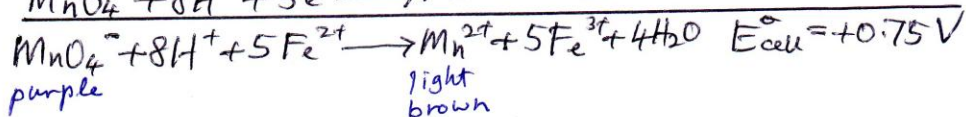 MnO₄⁻ + 8H⁺ + 5
MnO₄⁻ + 8H⁺ + 5Fe²⁺ → Mn²⁺ + 5Fe³⁺ + 4H₂O E°cell = +0.75 V
purple light
brown